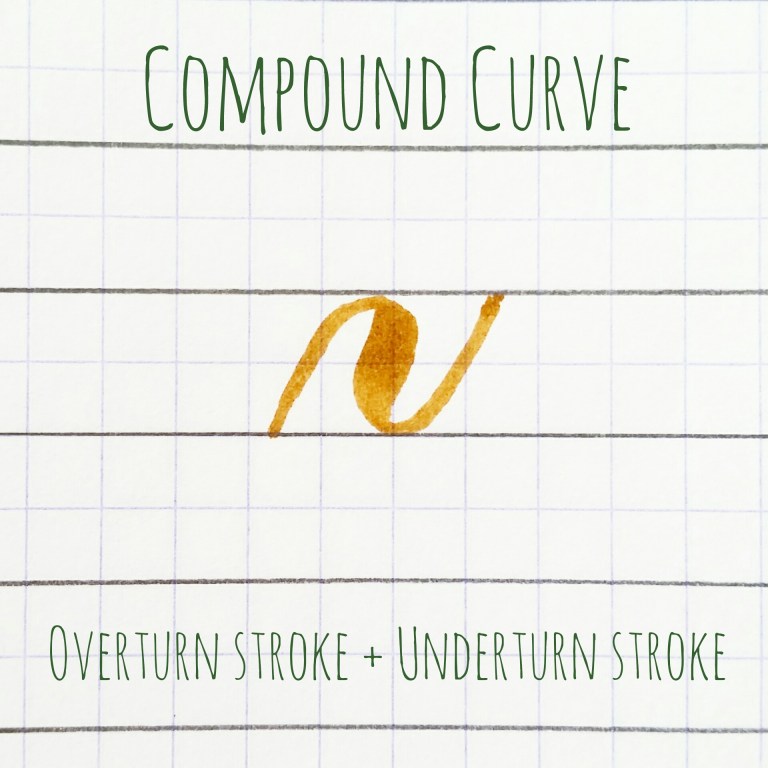 Compound Curve
Overturn stroke + Underturn stroke